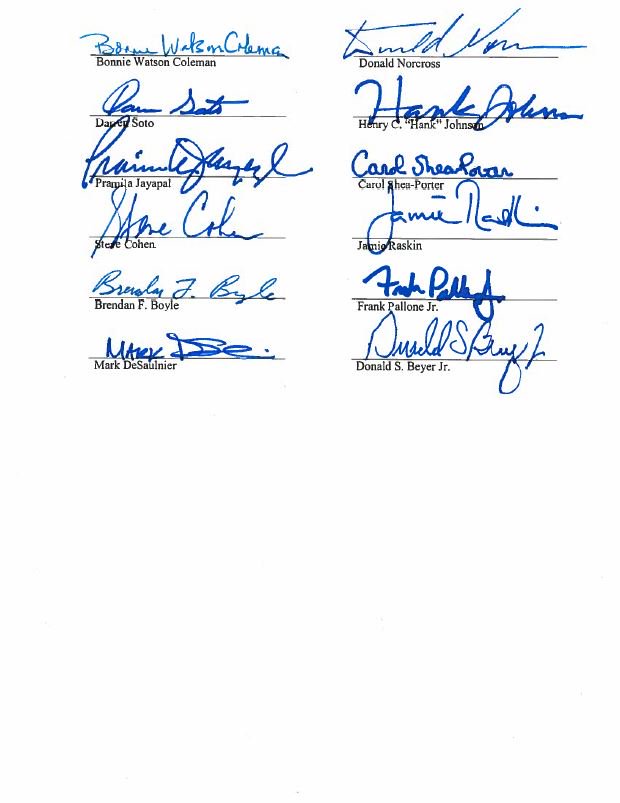 Bonnie Watson Coleman
Bonnie Watson Coleman
Donald Norcross
Darren Soto
Henry C. "Hank" Johnson
Hank Johnson
Pramila Jayapal
Pramila Jayapal
Carol Shea-Porter
Carol Shea-Porter
Steve Cohen
Steve Cohen
Jamie Raskin
Jamie Raskin
Brendan F. Boyle
Brendan F. Boyle
Frank Pallone Jr.
Mark DeSaulnier
Donald S Beyer Jr
Donald S. Beyer Jr.